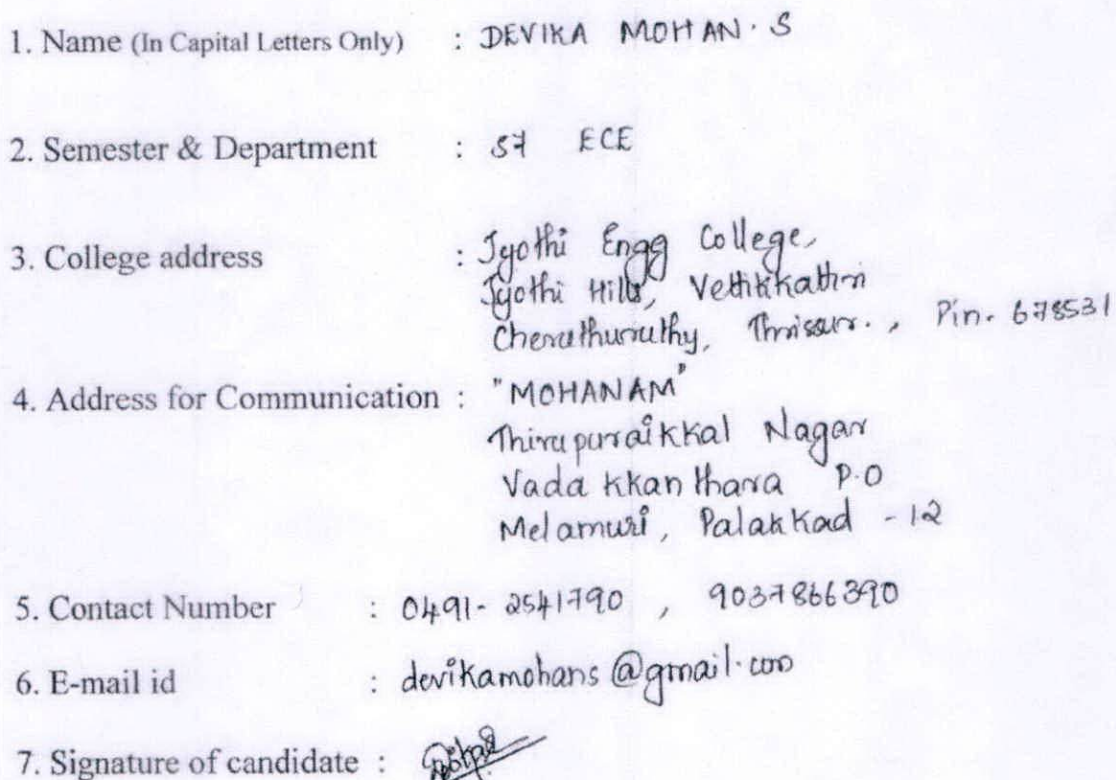 1. Name (In Capital Letters Only) : DEVIKA MOHAN. S
2. Semester & Department : S7 ECE
3. College address : Jyothi Engg College,
Jyothi Hills, Vettikkattiri
Cheruthuruthy, Thrissur., Pin. 678531
4. Address for Communication : "MOHANAM"
Thirupuraikkal Nagar
Vadakkanthara P.O
Melamuri, Palakkad - 12
5. Contact Number : 0491- 2541790 , 9037866390
6. E-mail id : devikamohans@gmail.com
7. Signature of candidate :